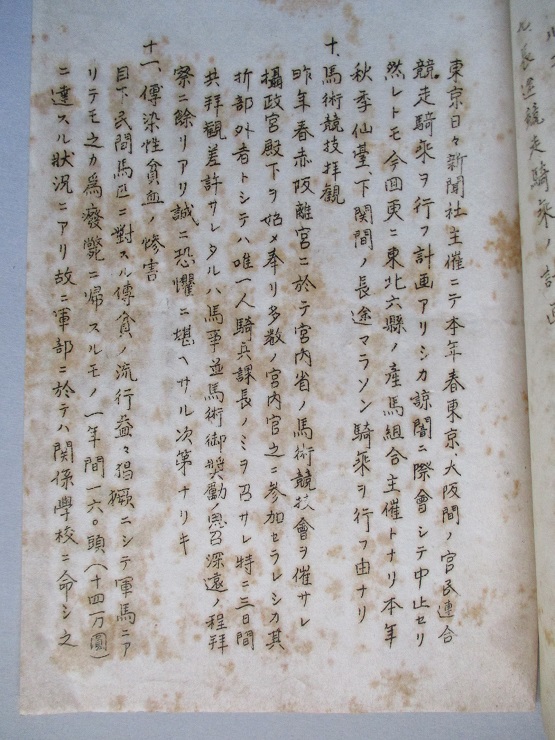 ル長途競走騎乗ノ計画
東京日々新聞社主催ニテ本年春東京、大阪間ノ官民連合
競走騎乗ヲ行フ計画アリシカ諒闇ニ際會シテ中止セリ
然レトモ今回更ニ東北六縣ノ産馬組合主催トナリ本年
秋季仙臺、下関間ノ長途マラソン騎乗ヲ行フ由ナリ
十、馬術競技拝観
昨年春赤阪離宮ニ於テ宮内省ノ馬術競技會ヲ催サレ
攝政宮殿下ヲ始メ奉リ多数ノ宮内官之ニ参加セラレシカ其
折部外者トシテハ唯一人騎兵課長ノミヲ召サレ特ニ三日間
共拝觀差許サレタルハ馬事並馬術御奨勵ノ思召深遠ノ程拝
察ニ餘リアリ誠ニ恐懼ニ堪ヘサル次第ナリキ
十一、傳染性貧血ノ惨害
目下民間馬匹ニ對スル傳貧ノ流行益々猖獗ニシテ軍馬ニア
リテモ之カ爲癈斃ニ帰スルモノ一年間一六〇頭（十四万圓）
ニ達スル状況ニアリ故ニ軍部ニ於テハ関係學校ニ命シ之